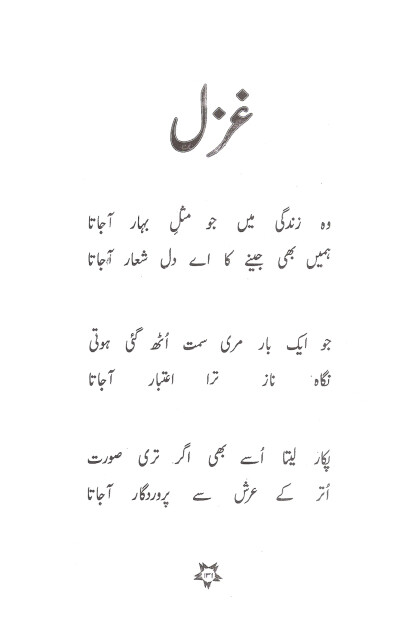 غزل
وہ زندگی میں جو مثلِ بہار آجاتا
ہمیں بھی جینے کا اے دل شعار آجاتا
جو ایک بار مری سمت اُٹھ گئی ہوتی
نگاہ ناز ترا اعتبار آجاتا
پکار لیتا اُسے بھی اگر تری صورت
اُتر کے عرش سے پروردگار آجاتا
۱۳۱